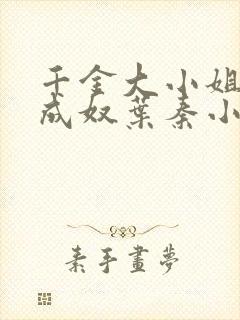 千金大小姐
成奴葉秦小
素手畫夢